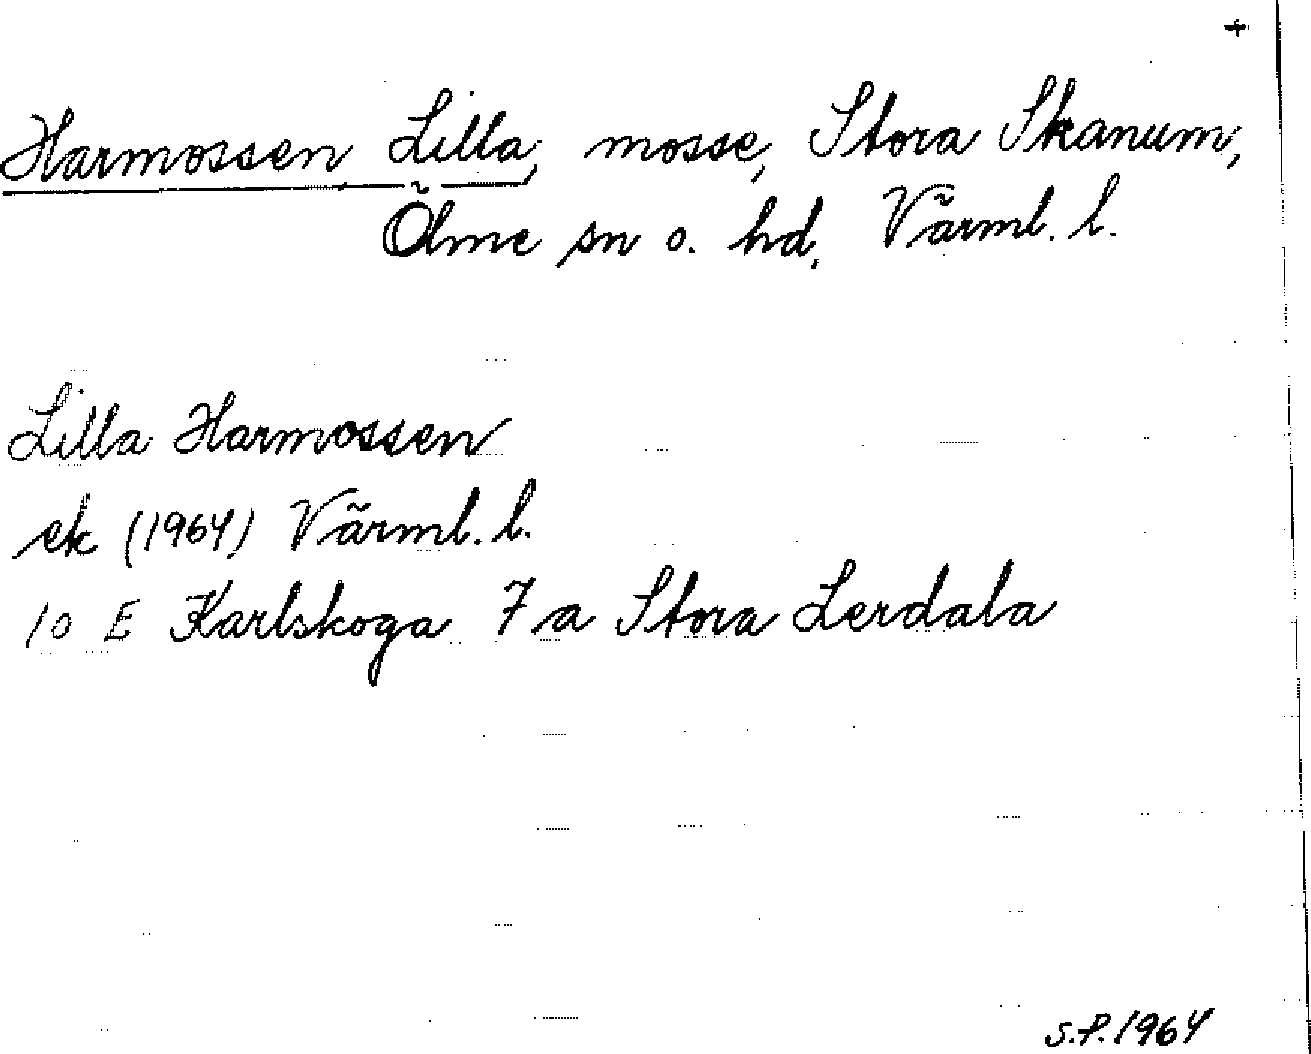 +
Harmossen, Lilla, mosse, Stora Skanum,
Ölme sn o. hd, Värml. l.
Lilla Harmossen
ek (1964) Värml. l.
10 E Karlskoga 7 a Stora Lerdala
S.P. 1964